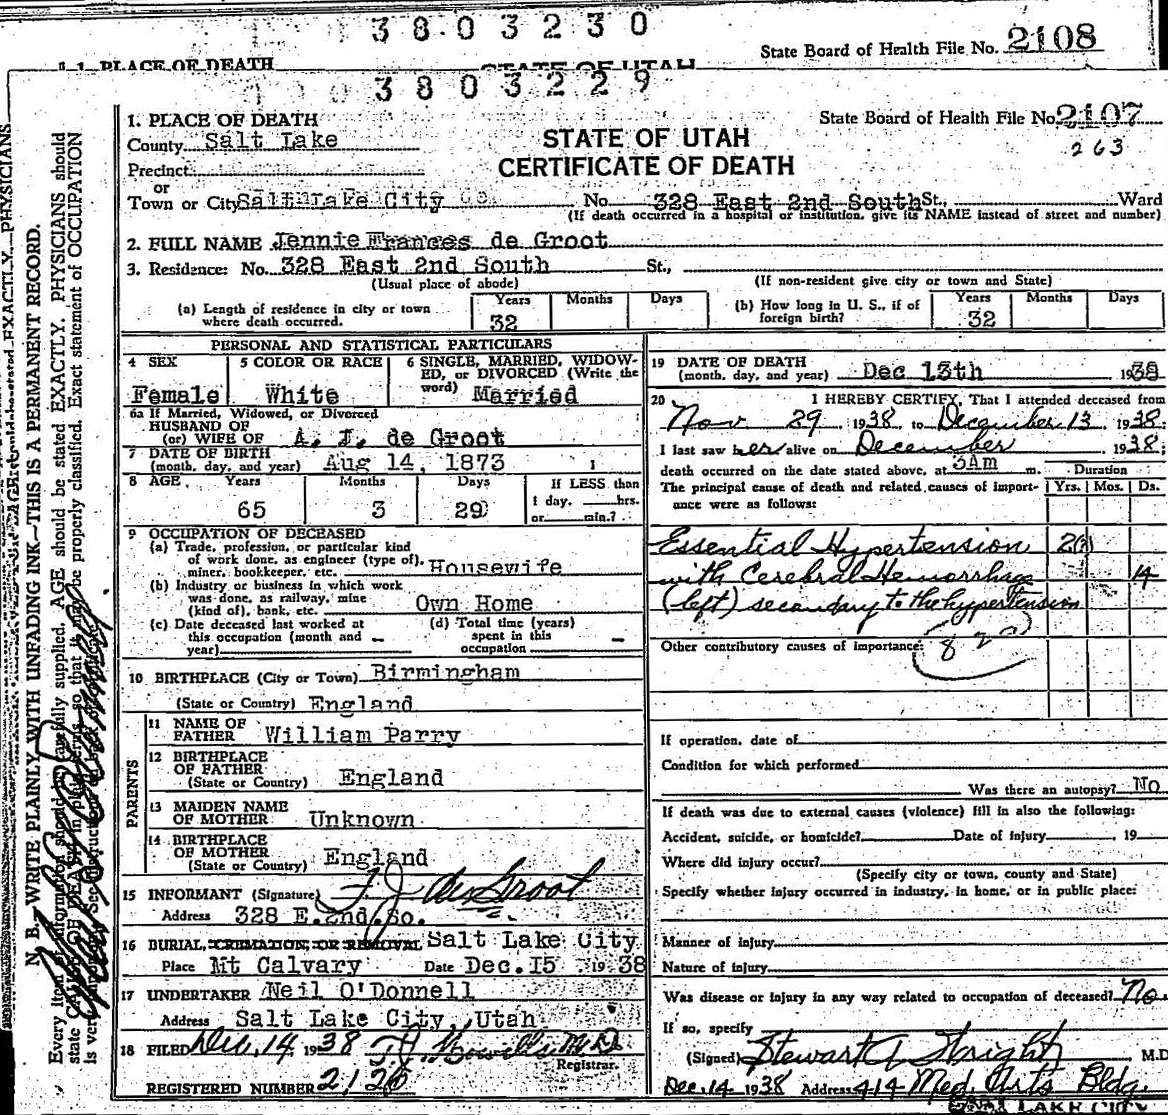 3803230
State Board of Health File No. 2108
1. PLACE OF DEATH STATE OF UTAH
3803229
1. PLACE OF DEATH
State Board of Health File No. 2107
263
County Salt Lake
STATE OF UTAH
CERTIFICATE OF DEATH
Precinct
or
Town or City Salt Lake City No. 328 East 2nd South St., Ward
(If death occurred in a hospital or institution, give its NAME instead of street and number)
2. FULL NAME Jennie Frances de Groot
3. Residence: No. 328 East 2nd South St.,
(Usual place of abode) (If non-resident give city or town and State)
(a) Length of residence in city or town where death occurred. Years 32 Months Days
(b) How long in U. S., if of foreign birth? Years 32 Months Days
PERSONAL AND STATISTICAL PARTICULARS
4 SEX Female
5 COLOR OR RACE White
6 SINGLE, MARRIED, WIDOWED, or DIVORCED (Write the word) Married
6a If Married, Widowed, or Divorced
HUSBAND OF
(or) WIFE OF A. J. de Groot
7 DATE OF BIRTH
(month, day, and year) Aug 14, 1873
8 AGE Years 65 Months 3 Days 29 If LESS than 1 day, hrs. or min.?
9 OCCUPATION OF DECEASED
(a) Trade, profession, or particular kind
of work done, as engineer (type of),
miner, bookkeeper, etc. Housewife
(b) Industry or business in which work
was done, as railway, mine
(kind of), bank, etc. Own Home
(c) Date deceased last worked at
this occupation (month and
year) –
(d) Total time (years)
spent in this
occupation –
10 BIRTHPLACE (City or Town) Birmingham
(State or Country) England
PARENTS
11 NAME OF
FATHER William Parry
12 BIRTHPLACE
OF FATHER
(State or Country) England
13 MAIDEN NAME
OF MOTHER Unknown
14 BIRTHPLACE
OF MOTHER
(State or Country) England
15 INFORMANT (Signature) de Groot
Address 328 E. 2nd So.
16 BURIAL, CREMATION, OR REMOVAL Salt Lake City
Place Mt Calvary Date Dec. 15 1938
17 UNDERTAKER Neil O'Donnell
Address Salt Lake City, Utah
18 FILED Dec. 14, 1938 M.D.
Registrar.
REGISTERED NUMBER 2126
19 DATE OF DEATH
(month, day, and year) Dec 13th 1938
20 I HEREBY CERTIFY, That I attended deceased from
Nov 29 1938 to December 13 1938;
I last saw her alive on December 1938;
death occurred on the date stated above, at 3AM m. Duration
The principal cause of death and related causes of importance were as follows: Yrs. Mos. Ds.
Essential Hypertension
with Cerebral Hemorrhage 14
(left) secondary to the hypertension
Other contributory causes of importance:
If operation, date of
Condition for which performed
Was there an autopsy? No
If death was due to external causes (violence) fill in also the following:
Accident, suicide, or homicide? Date of injury , 19
Where did injury occur?
(Specify city or town, county and State)
Specify whether injury occurred in industry, in home, or in public place:
Manner of injury
Nature of injury
Was disease or injury in any way related to occupation of deceased? No
If so, specify
(Signed) Stewart A Wright M.D.
Dec 14 1938 Address 414 Med. Arts Bldg.
LAKE CITY
N. B.—WRITE PLAINLY WITH UNFADING INK—THIS IS A PERMANENT RECORD.
Every item of information should be carefully supplied. AGE should be stated EXACTLY. PHYSICIANS should
state CAUSE OF DEATH in plain terms, so that it may be properly classified. Exact statement of OCCUPATION
is very important.
EXACTLY. PHYSICIANS